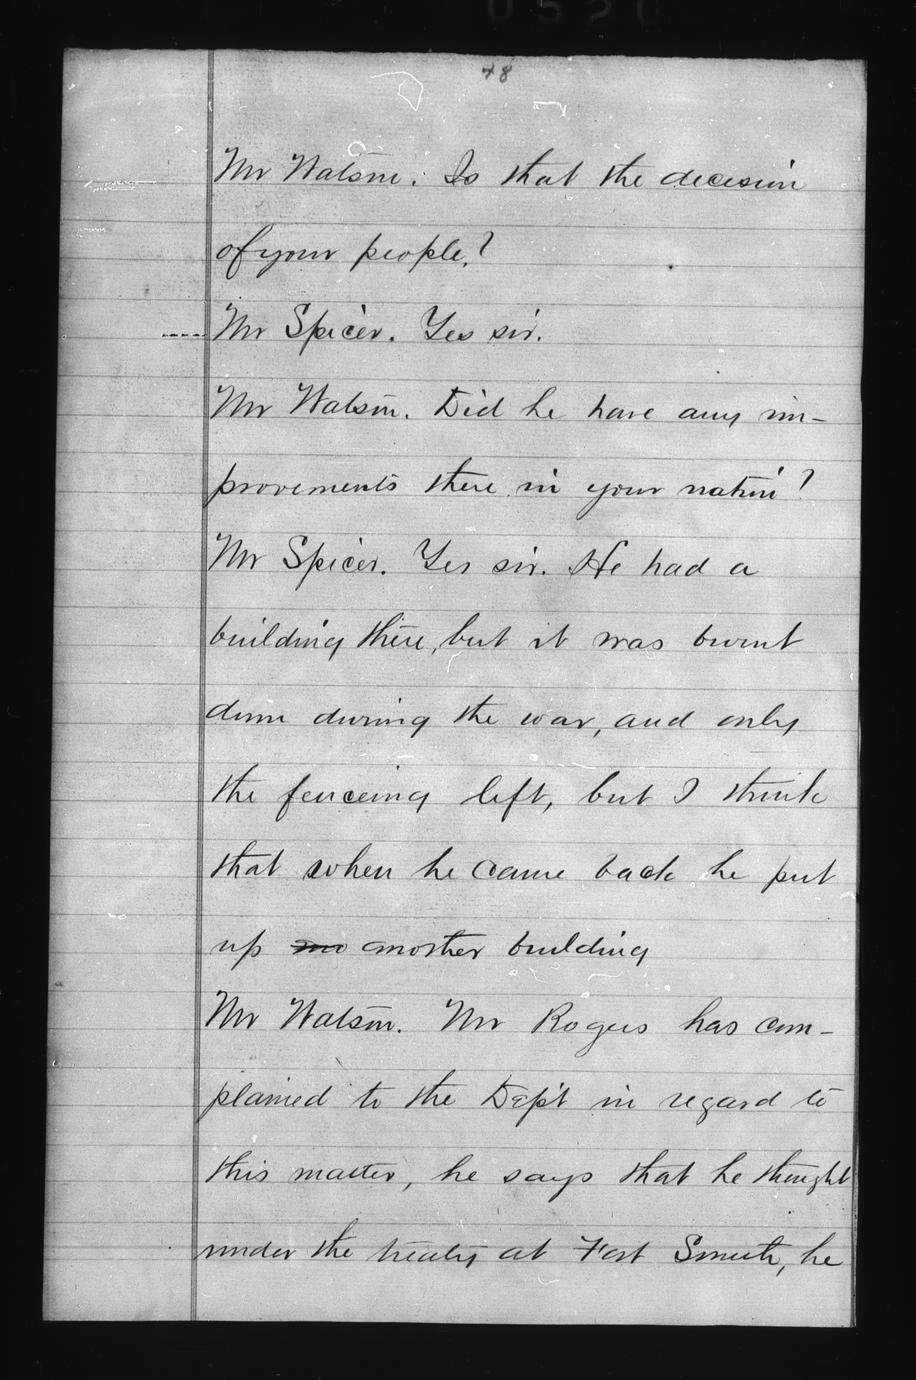 78
Mr Watson. Is that the decision
of your people?
Mr Spicer. Yes sir.
Mr Watson. Did he have any im-
provements there in your nation?
Mr Spicer. Yes sir. He had a
building there, but it was burnt
down during the war, and only
the fenceing left, but I think
that when he came back he put
up another building
Mr Watson. Mr Rogers has com-
plained to the Dep't in regard to
this matter, he says that he thought
under the treaty at Fort Smith, he